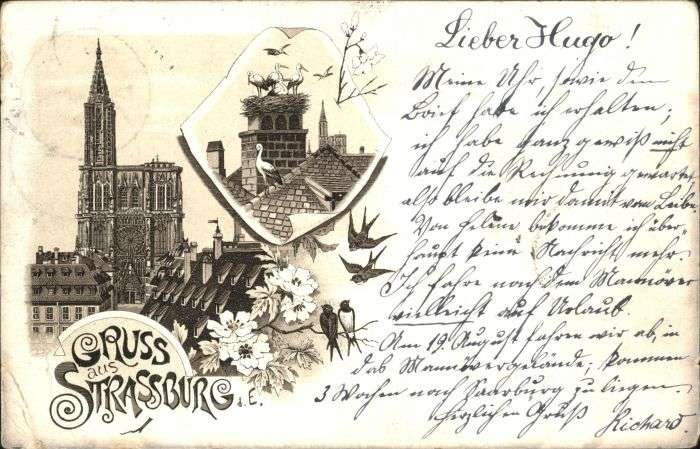 Lieber Hugo!
Meine Uhr, sowie den
Brief habe ich erhalten;
ich habe ganz gewiß nicht
auf die Rechnung gewartet
als bleibe mir damit vom Leibe
Von Helene bekomme ich über-
haupt keine Nachricht mehr.
Ich fahre nach dem Mannöver
vielleicht auf Urlaub.
Am 19. August fahren wir ab, in
das Mannövergelände, kommen
3 Wochen nach Saarburg zu liegen.
Herzlichen Gruß
Richard.
GRUSS
aus
STRASSBURG
d. E.